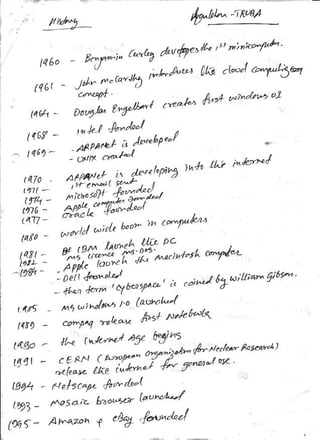 History
1960 - Benjamin Curley developes the 1st minicomputer.
1961 - John McCarthy introduces the cloud computing
concept.
1964 - Douglas Engelbart creates first windows UI
1968 - Intel fonded
1969 - - ARPANet is developed
- UNIX created
1970 - ARPANet is developing into the internet
1971 - 1st email sent
1974 - Microsoft founded
1976 - Apple computer founded
1977 - Oracle founded
1980 - world wide boom in computers
1981 - IBM launch the PC
1982 - MS licence MS-DOS.
1984 - - Apple launch the macintosh computer
- Dell founded
- the term 'Cyberspace' is coined by william Gibson.
1985 - MS windows 1.0 launched
1989 - compaq release first Notebook
1990 - the Internet Age begins
1991 - CERN (European organization for Neclear Research)
release the internet for general use.
1994 - Netscape founded
1993 - Mosaic browser launched
1995 - Amazon & eBay founded